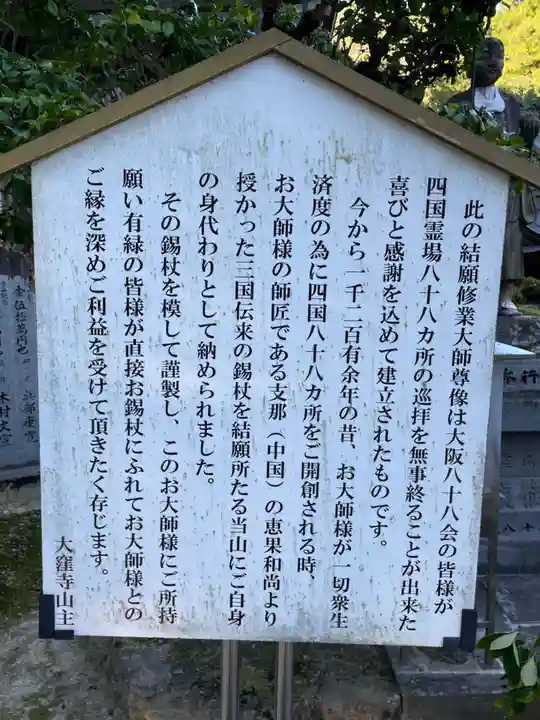 此の結願修業大師尊像は大阪八十八会の皆様が
四国霊場八十八カ所の巡拝を無事終ることが出来た
喜びと感謝を込めて建立されたものです。
今から一千二百有余年の昔、お大師様が一切衆生
済度の為に四国八十八カ所をご開創される時、
お大師様の師匠である支那（中国）の恵果和尚より
授かった三国伝来の錫杖を結願所たる当山にご自身
の身代わりとして納められました。
その錫杖を模して謹製し、このお大師様にご所持
願い有緑の皆様が直接お錫杖にふれてお大師様との
ご縁を深めご利益を受けて頂きたく存じます。
大窪寺山主
金伍拾萬円也